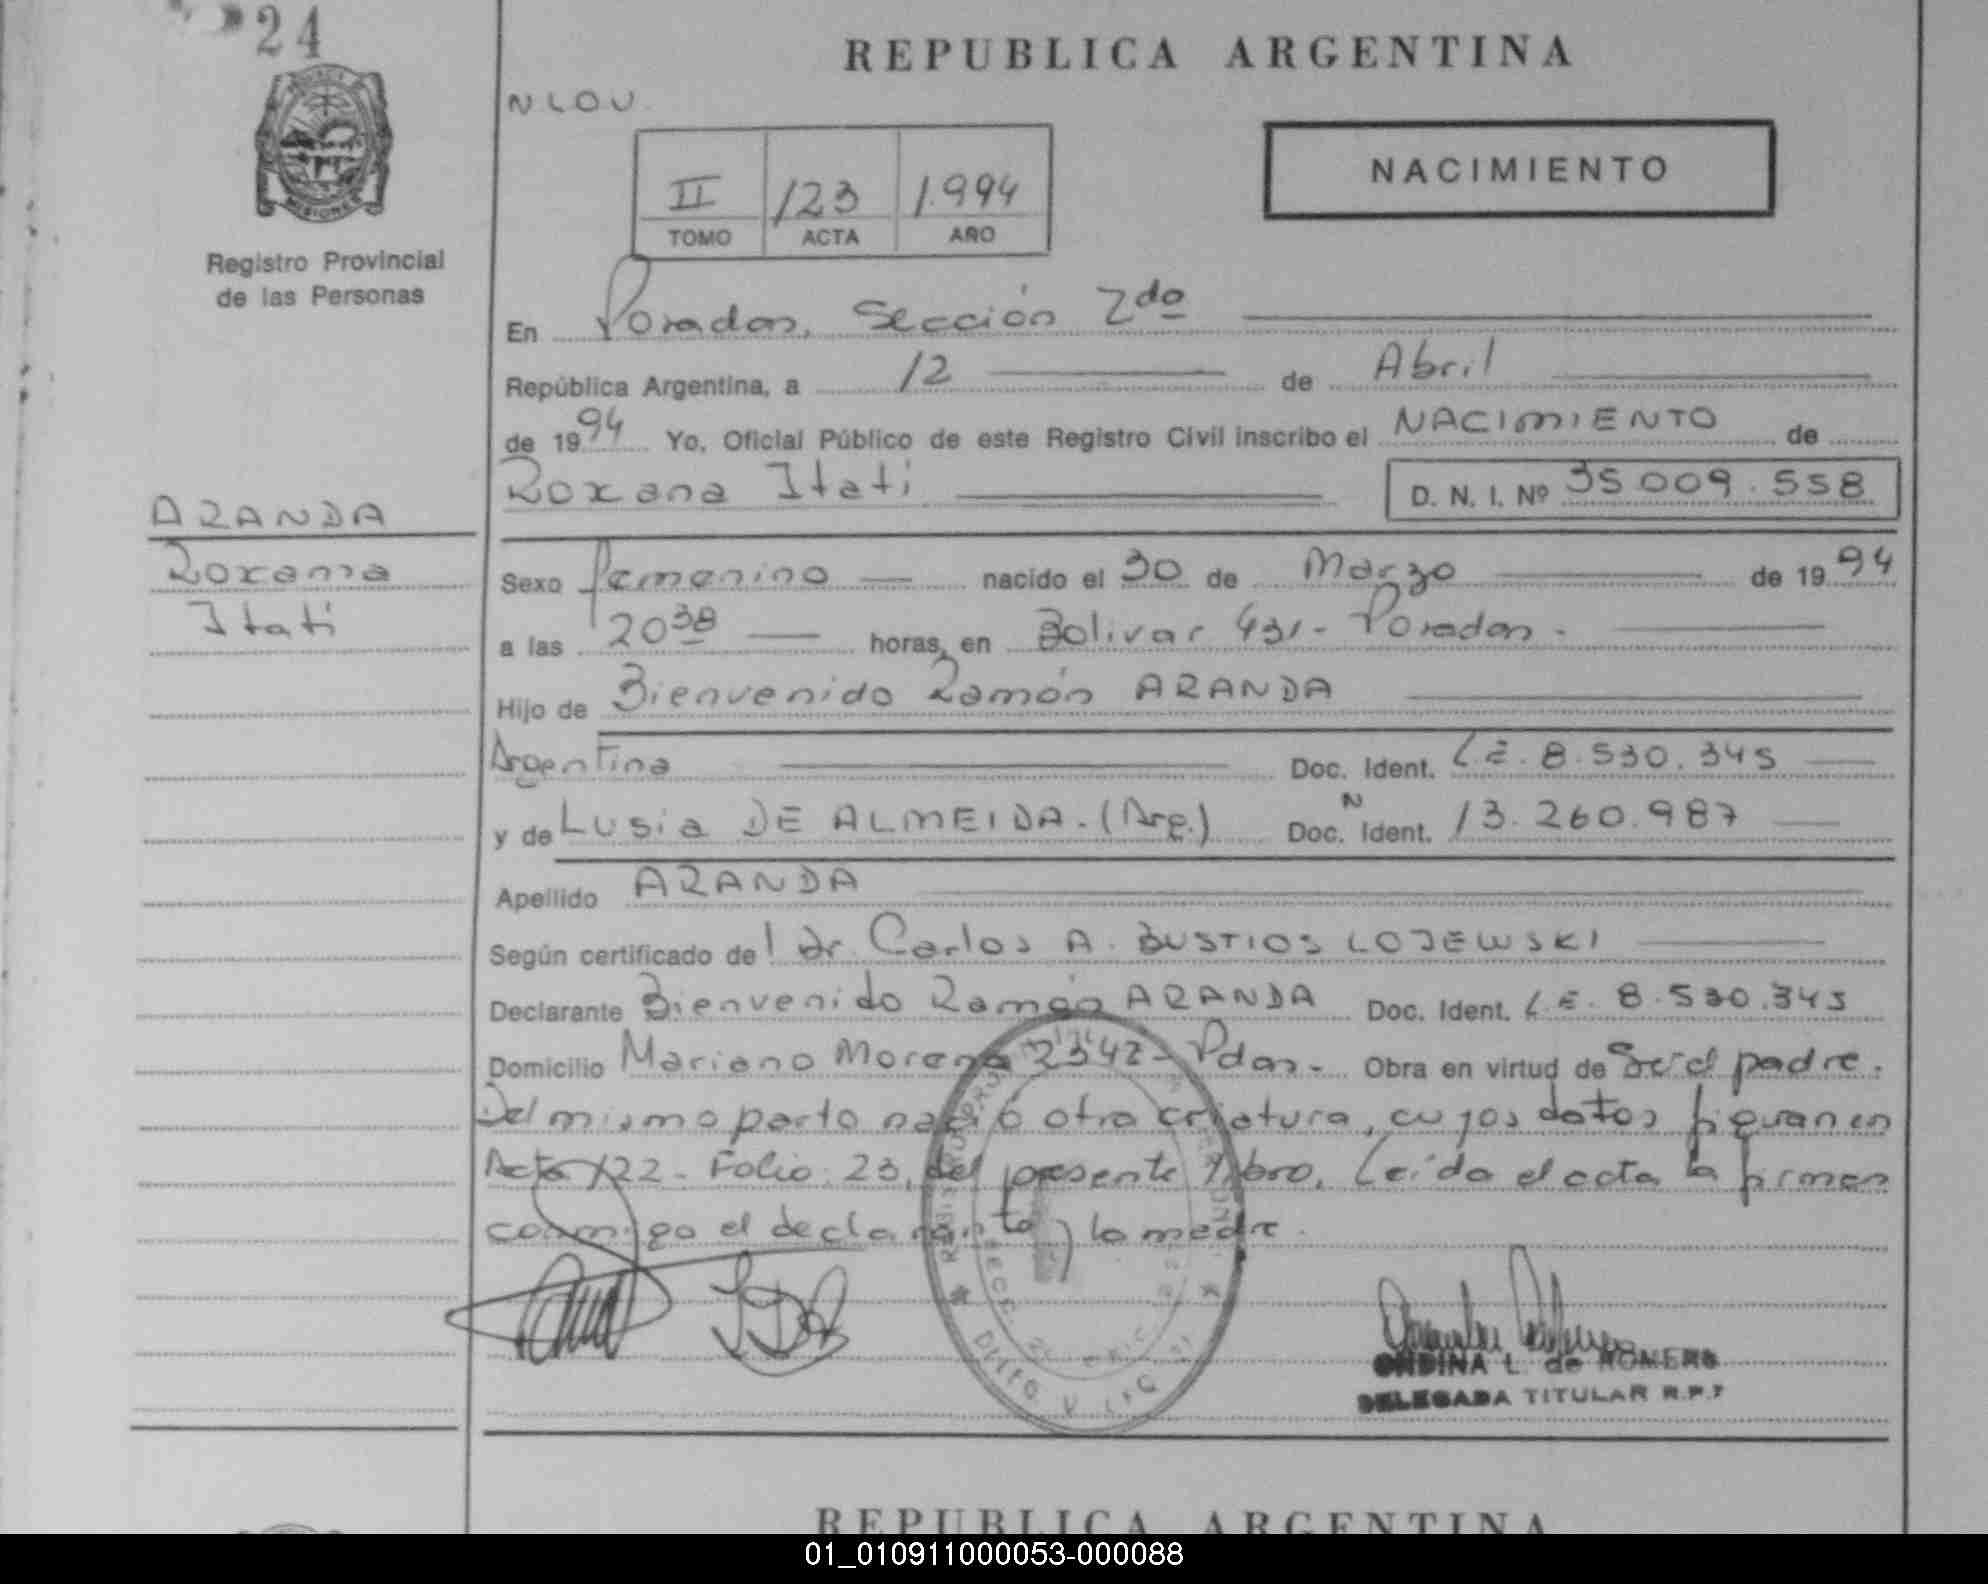 24
REPUBLICA ARGENTINA
NLOU.
MISIONES
II 123 1.994
TOMO ACTA AÑO
NACIMIENTO
Registro Provincial
de las Personas
En Posadas, Sección 2do
República Argentina, a 12 de Abril
de 1994 Yo, Oficial Público de este Registro Civil inscribo el NACIMIENTO de
Roxana Itati D. N. I. Nº 35009.558
ARANDA
Roxana
Itati
Sexo femenino nacido el 30 de Marzo de 1994
a las 20 38 horas, en Bolivar 431- Posadas.
Hijo de Bienvenido Ramón ARANDA
Argentina Doc. Ident. L.E. 8.530.345
y de Lusia DE ALMEIDA. (Arg.) Doc. N Ident. 13.260.987
Apellido ARANDA
Según certificado del Dr. Carlos A. BUSTIOS LOJEWSKI
Declarante Bienvenido Ramón ARANDA Doc. Ident. L.E. 8.530.345
Domicilio Mariano Moreno 2342- Pdas. Obra en virtud de Se'el padre.
Del mismo parto nació otra criatura, cuyos datos figuran en
Acta 122- Folio: 23, del presente libro. Leída el acta la firman
conmigo el declarante y la madre.
ONDINA L. de ROMERO
DELEGADA TITULAR R.P.P
REPUBLICA ARGENTINA
01_010911000053-000088